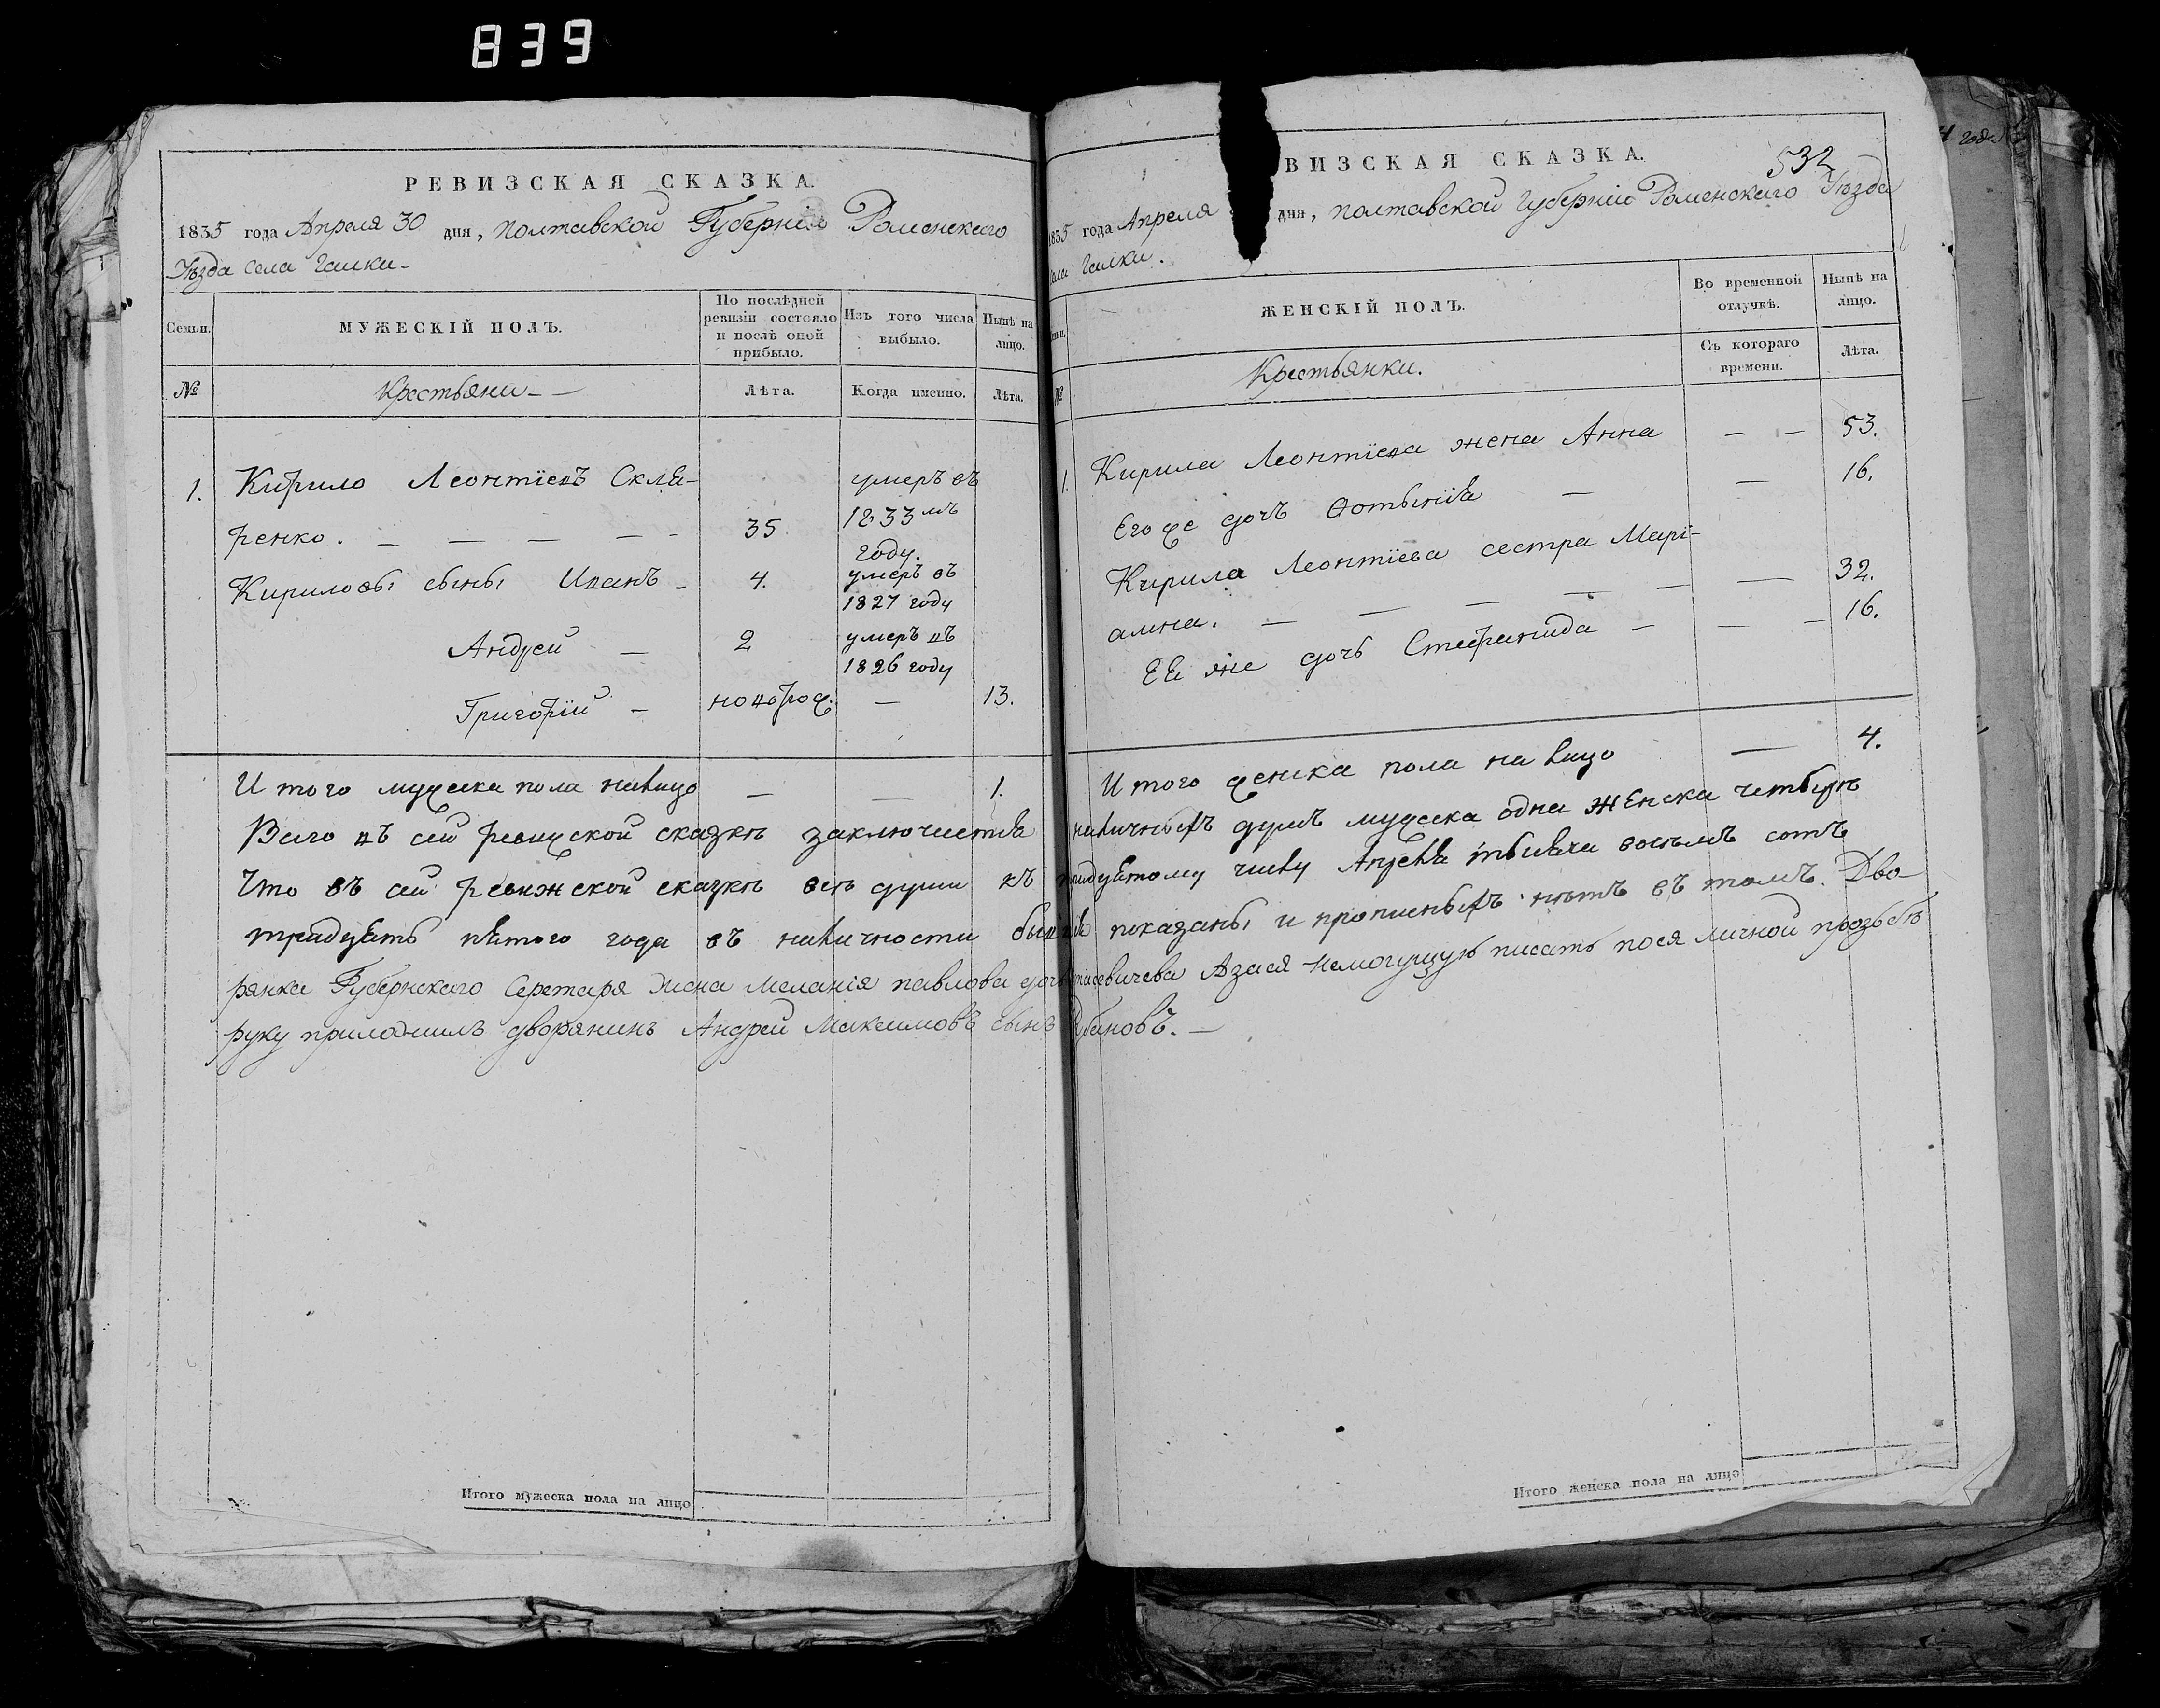 839
РЕВИЗСКАЯ СКАЗКА.
1835 года Апреля 30 дня, полтавской Губерніи Роменскаго
Уѣзда села Галки
Семьи.
МУЖЕСКІЙ ПОЛЪ.
По послѣдней ревизіи состояло и послѣ оной прибыло.
Изъ того числа выбыло.
Нынѣ на лицо.
№
Крестьяни
Лѣта.
Когда именно.
Лѣта.
1. Кирило Леонтіевъ Скля-
умеръ въ
ренко. 35. 1833мъ
году.
Кириловы сыны Иванъ 4. умеръ въ
1827 году
Андрей 2 умеръ въ
1826 году
Григорій новорож. 13.
И того мужеска пола налицо 1.
РЕВИЗСКАЯ СКАЗКА.
532
1835 года Апреля дня, полтавской губерніи Роменскаго Уѣзда
села Галки.
ЖЕНСКІЙ ПОЛЪ.
Во временной отлучкѣ.
Нынѣ на лицо.
№
Крестьянки.
Съ котораго времени.
Лѣта.
1. Кирила Леонтіева жена Анна 53.
Его же дочъ Фотынія 16.
Кирила Леонтіева сестра Марі-
амна. 32.
Ея же дочъ Стефанида 16.
И того женска пола на лицо 4.
Всего въ сей ревижской сказкѣ заключается наличныхъ душъ мужеска одна женска четыре
Что въ сей ревижской сказкѣ всѣ души къ тридцятому числу Апреля тысяча восемъ сотъ
тридцять пятого года въ наличности бывшія показаны и прописныхъ нѣтъ въ томъ. Дво-
рянка Губернского Серетаря Жена Меланія павлова дочъ Азася немогущую писать пося личной прозьбѣ
руку приложилъ дворянинъ Андрей Максимовъ сынъ
Итого мужеска пола на лицо
Итого женска пола на лицо